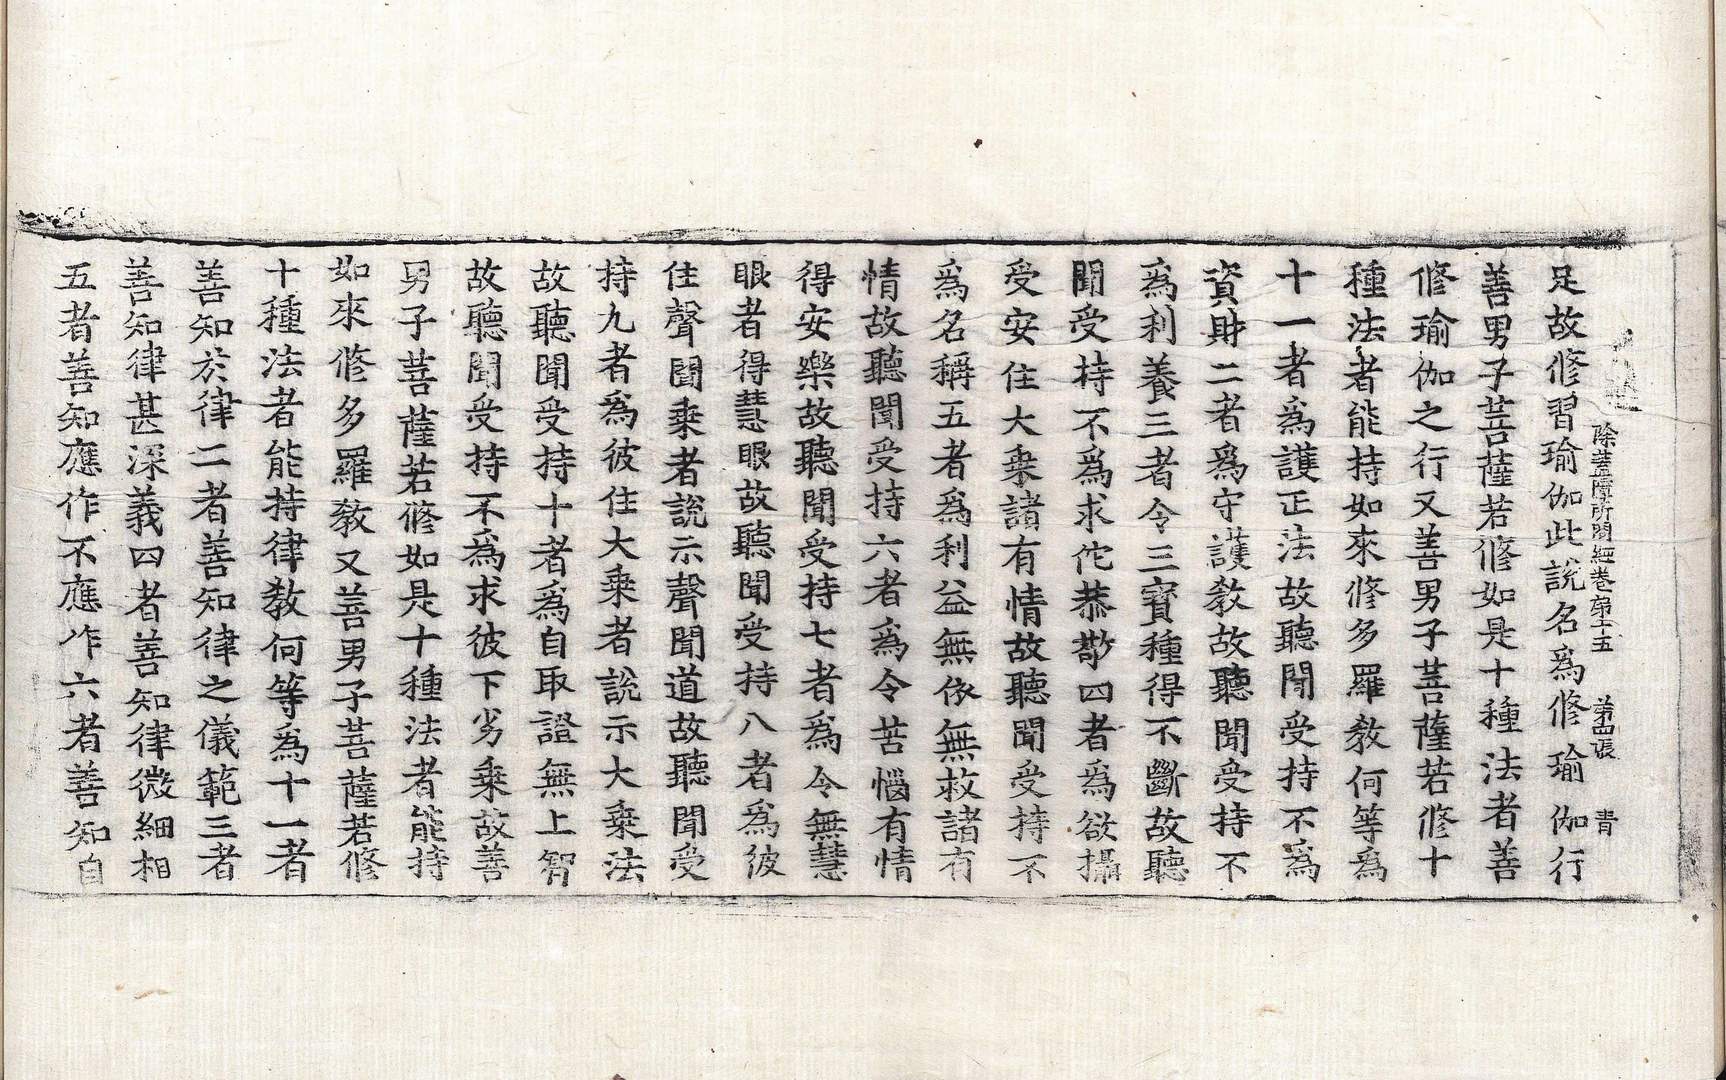 除蓋障所問經卷第十五 第四張 青
足故修習瑜伽此說名爲修瑜伽行
善男子菩薩若修如是十種法者善
修瑜伽之行又善男子菩薩若修十
種法者能持如來修多羅教何等爲
十一者爲護正法故聽聞受持不爲
資財二者爲守護教故聽聞受持不
爲利養三者令三寶種得不斷故聽
聞受持不爲求佗恭敬四者爲欲攝
受安住大乗諸有情故聽聞受持不
爲名稱五者爲利益無依無救諸有
情故聽聞受持六者爲令苦惱有情
得安樂故聽聞受持七者爲令無慧
眼者得慧眼故聽聞受持八者爲彼
住聲聞乗者說示聲聞道故聽聞受
持九者爲彼住大乗者說示大乗法
故聽聞受持十者爲自取證無上智
故聽聞受持不爲求彼下劣乗故善
男子菩薩若修如是十種法者能持
如來修多羅教又善男子菩薩若修
十種法者能持律教何等爲十一者
善知於律二者善知律之儀範三者
善知律甚深義四者善知律微細相
五者善知應作不應作六者善知自